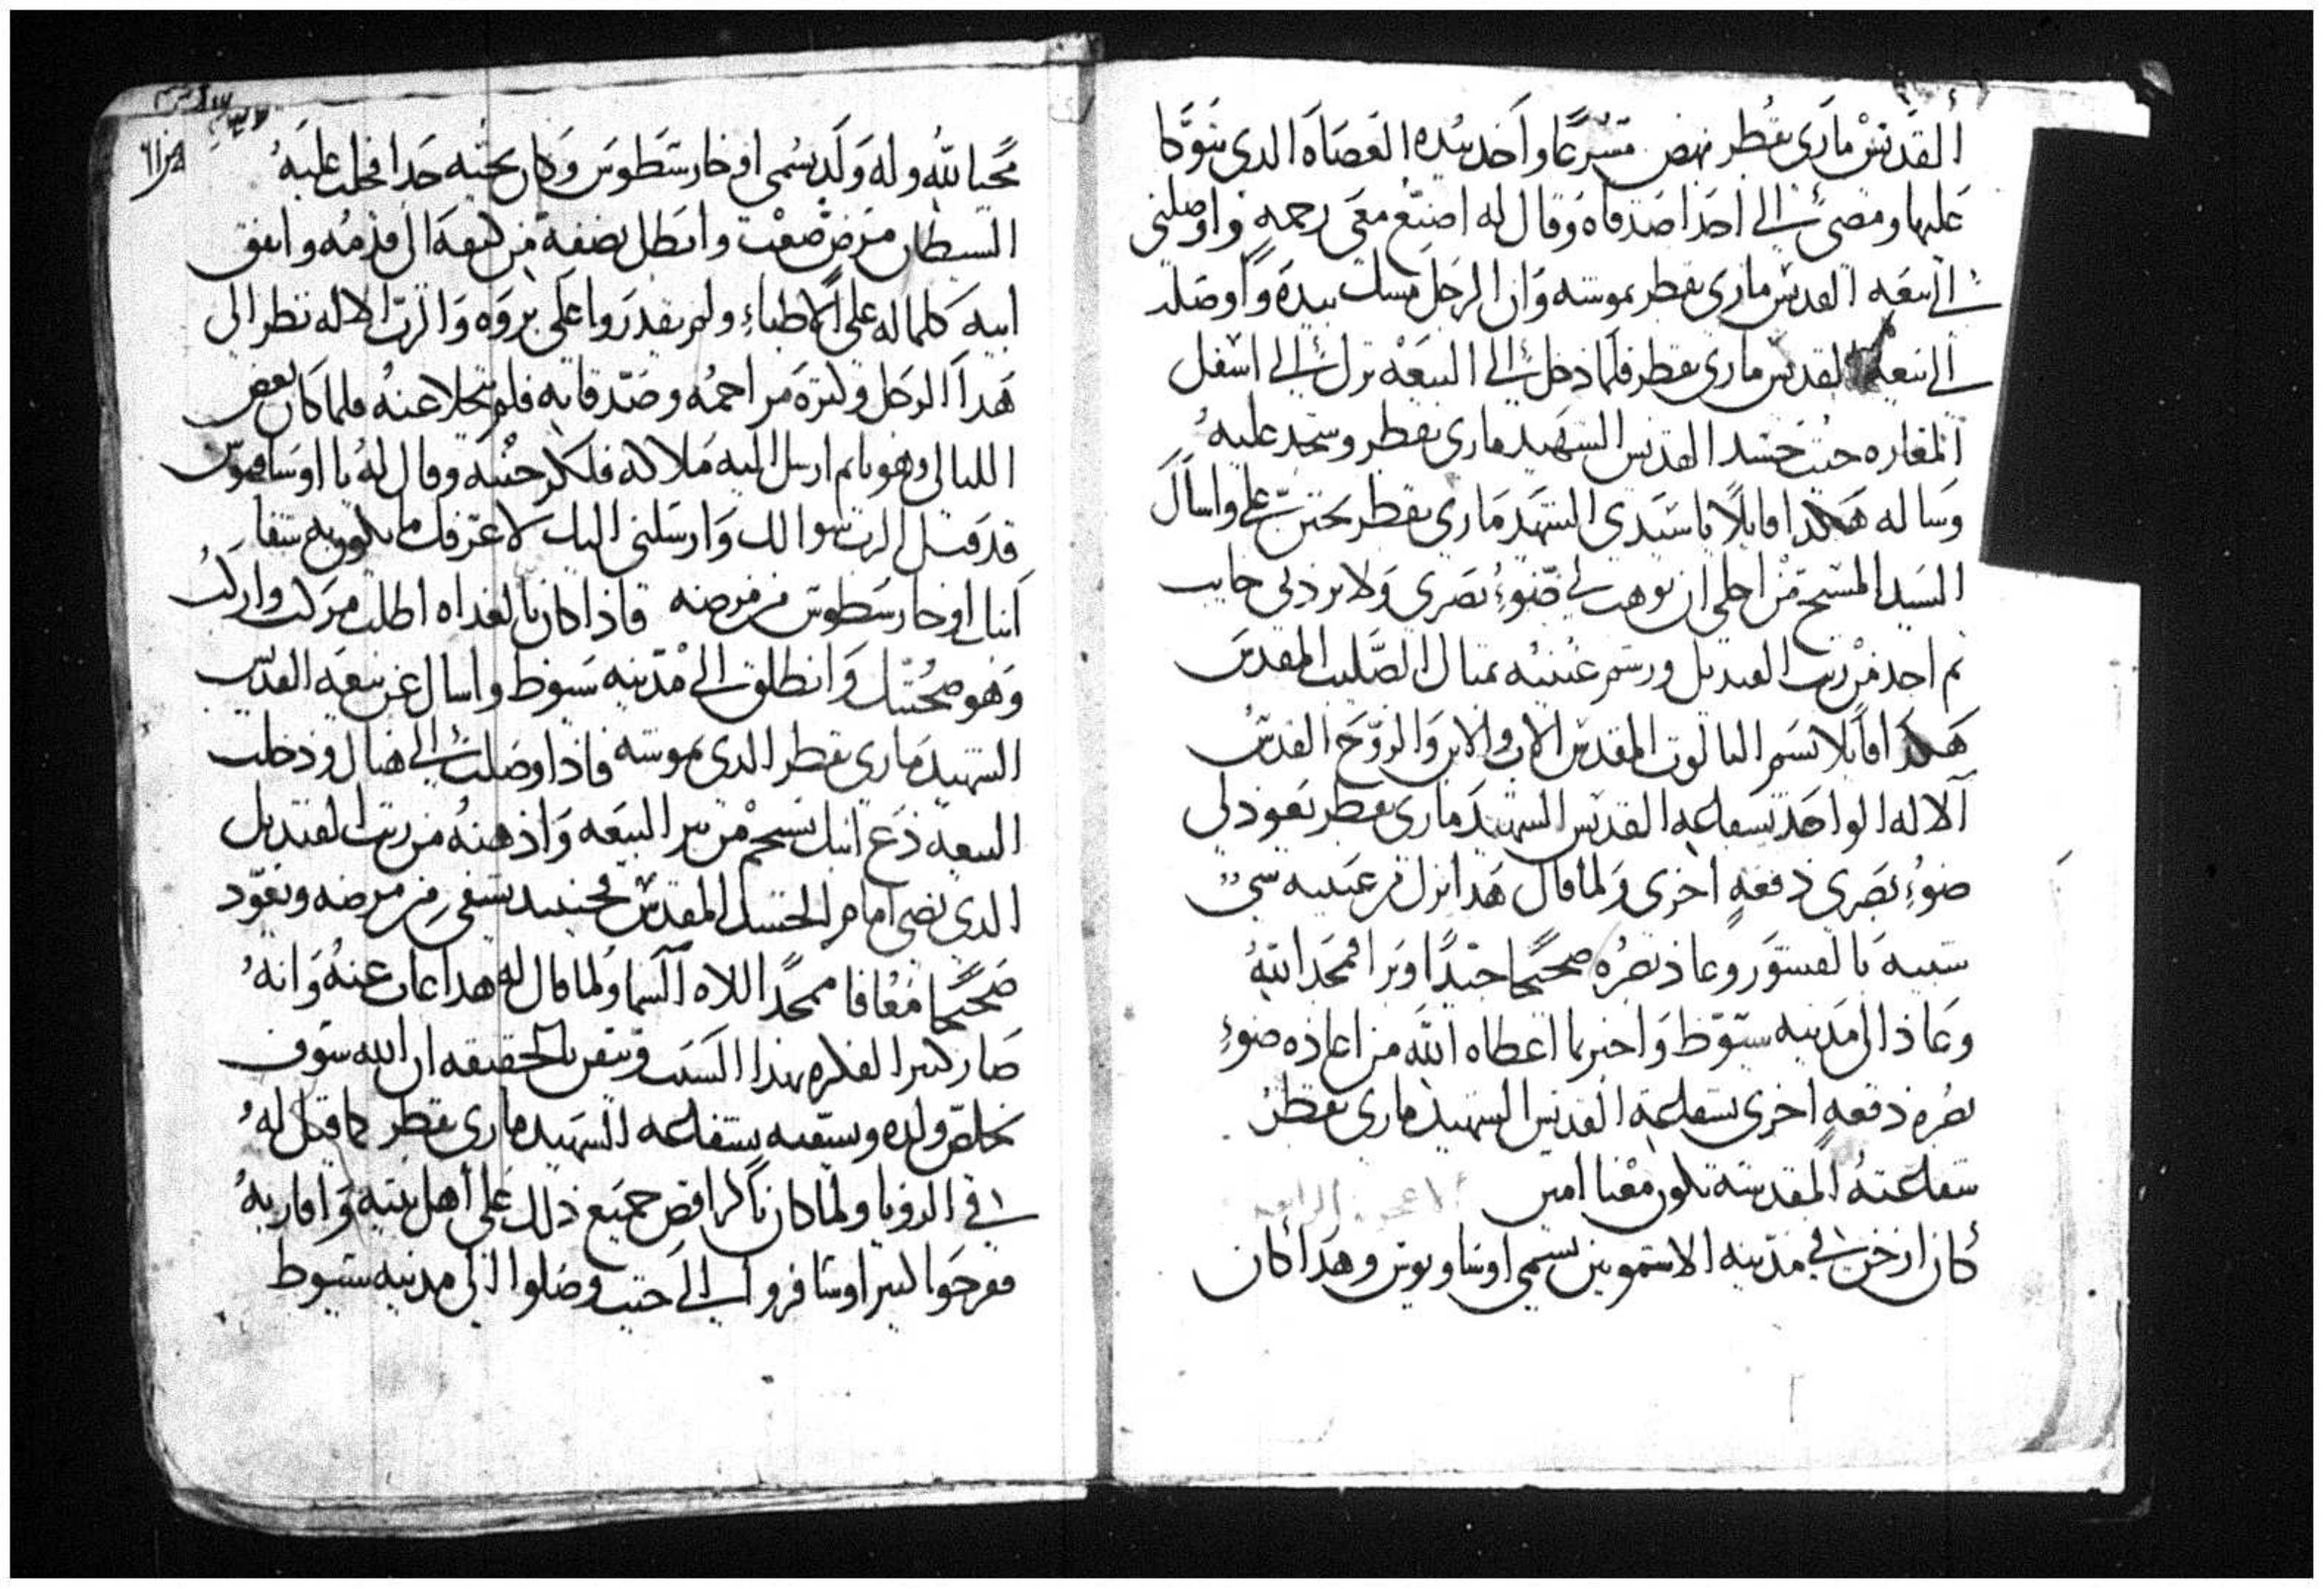 ألقديس ماري بقطر نهض مسرعا واخد بيده العصاه الدى يتوكا
عليها ومضى الى احد اصدقاه وقال له اصنع معى رحمه واوصلنى
الى بيعه القديس مارى بقطر بموشه وان الرجل مسك بيده واوصله
الى بيعه القديس مارى بقطر فلما دخل الى البيعه نزل الى اسفل
المغاره حيث جسد القديس الشهيد مارى بقطر وسجد عليه
وساله هكدا قايلا يا سيدى الشهيد مارى بقطر تحنن على واسال
السيد المسيح من اجلى ان يوهب لى ضوء بصرى ولا يردنى خايب
تم احد من زيت القنديل ورشم عينيه بمتال الصليب المقدس
هكدا قايلا بسم التالوت المقدس الاب والابن والروح القدس
الاله الواحد بشفاعه القديس الشهيد مارى بقطر يعود لى
ضوء بصرى دفعه اخرى ولما قال هدا نزل من عينيه شى
شبيه بالقشور وعاد بصره صحيحا جيدا وبرا فمجد الله
وعاد الى مدينه سيوط واخبر بما اعطاه الله من اعاده ضوء
بصره دفعه اخرى بشفاعة القديس الشهيد مارى بقطر
شفاعته المقدسه تكون معنا امين الاعجوبه الرابعه
كان ارخن فى مدينه الاشمونين يسمى اوساويوس وهدا كان
محبا لله وله ولد يسمى اوخارسطوس وكان يحبه جدا فجلب عليه
الشيطان مرض صعب وابطل نصفه من كتفه الى قدمه وانفق
ابيه كلما له على الاطباء ولم يقدروا على بروه والرب الاله نظر الى
هدا الرجل وكترة مراحمه وصدقاته فلم يتخلا عنه فلما كان بعض
الليالى وهو نايم ارسل اليه ملاكه فلكز جنبه وقال له يا اوساويوس
قد قبل الرب سوالك وارسلنى اليك لاعرفك ما يكون به شفا
ابنك اوخارسطوس من مرضه فادا كان بالغداه اطلب مركب واركب
وهو صحبتك وانطلق الى مدينه سيوط واسال عن بيعه القديس
الشهيد مارى بقطر الدى بموشه فادا وصلت الى هناك ودخلت
البيعه دع ابنك يسبح من بير البيعه وادهنه من زيت القنديل
الدى يضى امام الجسد المقدس فحينيد يشفى من مرضه ويعود
صحيحا معافا ممجدا لالاه السما ولما قال له هدا غاب عنه وانه
صار كتير الفكره بهدا السبب وتيقن بالحقيقه ان الله سوف
يخلص ولده ويشفيه بشفاعه الشهيد مارى بقطر كما قيل له
فى الرويا ولما كان باكرا قص جميع دلك على أهل بيته واقاربه
ففرحوا كتيرا وسافروا الى حيت وصلوا الى مدينه سيوط